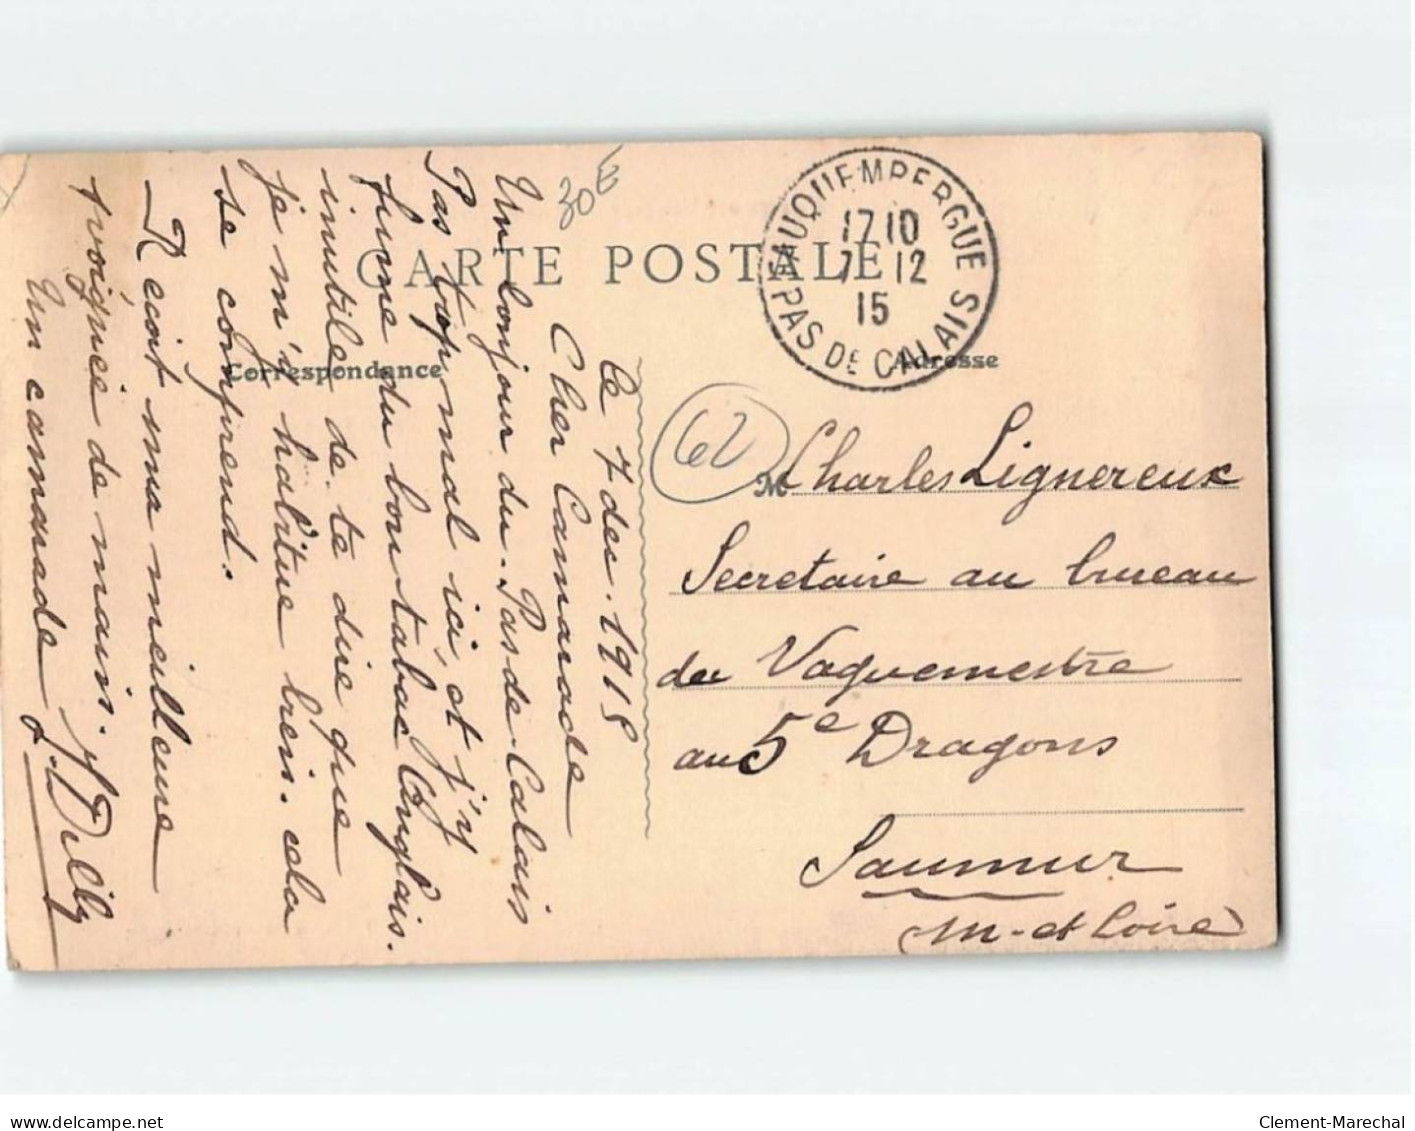 CARTE POSTALE
Correspondance
Adresse
FAUQUEMBERGUE
17 10
7 12
15
PAS DE CALAIS
30E
62
Ce 7 dec. 1915
Cher Camarade
Un bonjour du Pas de Calais
Pas trop mal ici, et j'y
fume du bon tabac Anglais.
inutile de te dire que
je m'y habitue bien. cela
se comprend.
Recoit ma meilleure
poignée de main.
Un camarade
Dilly
M Charles Lignereux
Secretaire au bureau
du Vaguemestre
au 5e Dragons
Saumur
M-et Loire
delcampe.net
Clement-Marechal